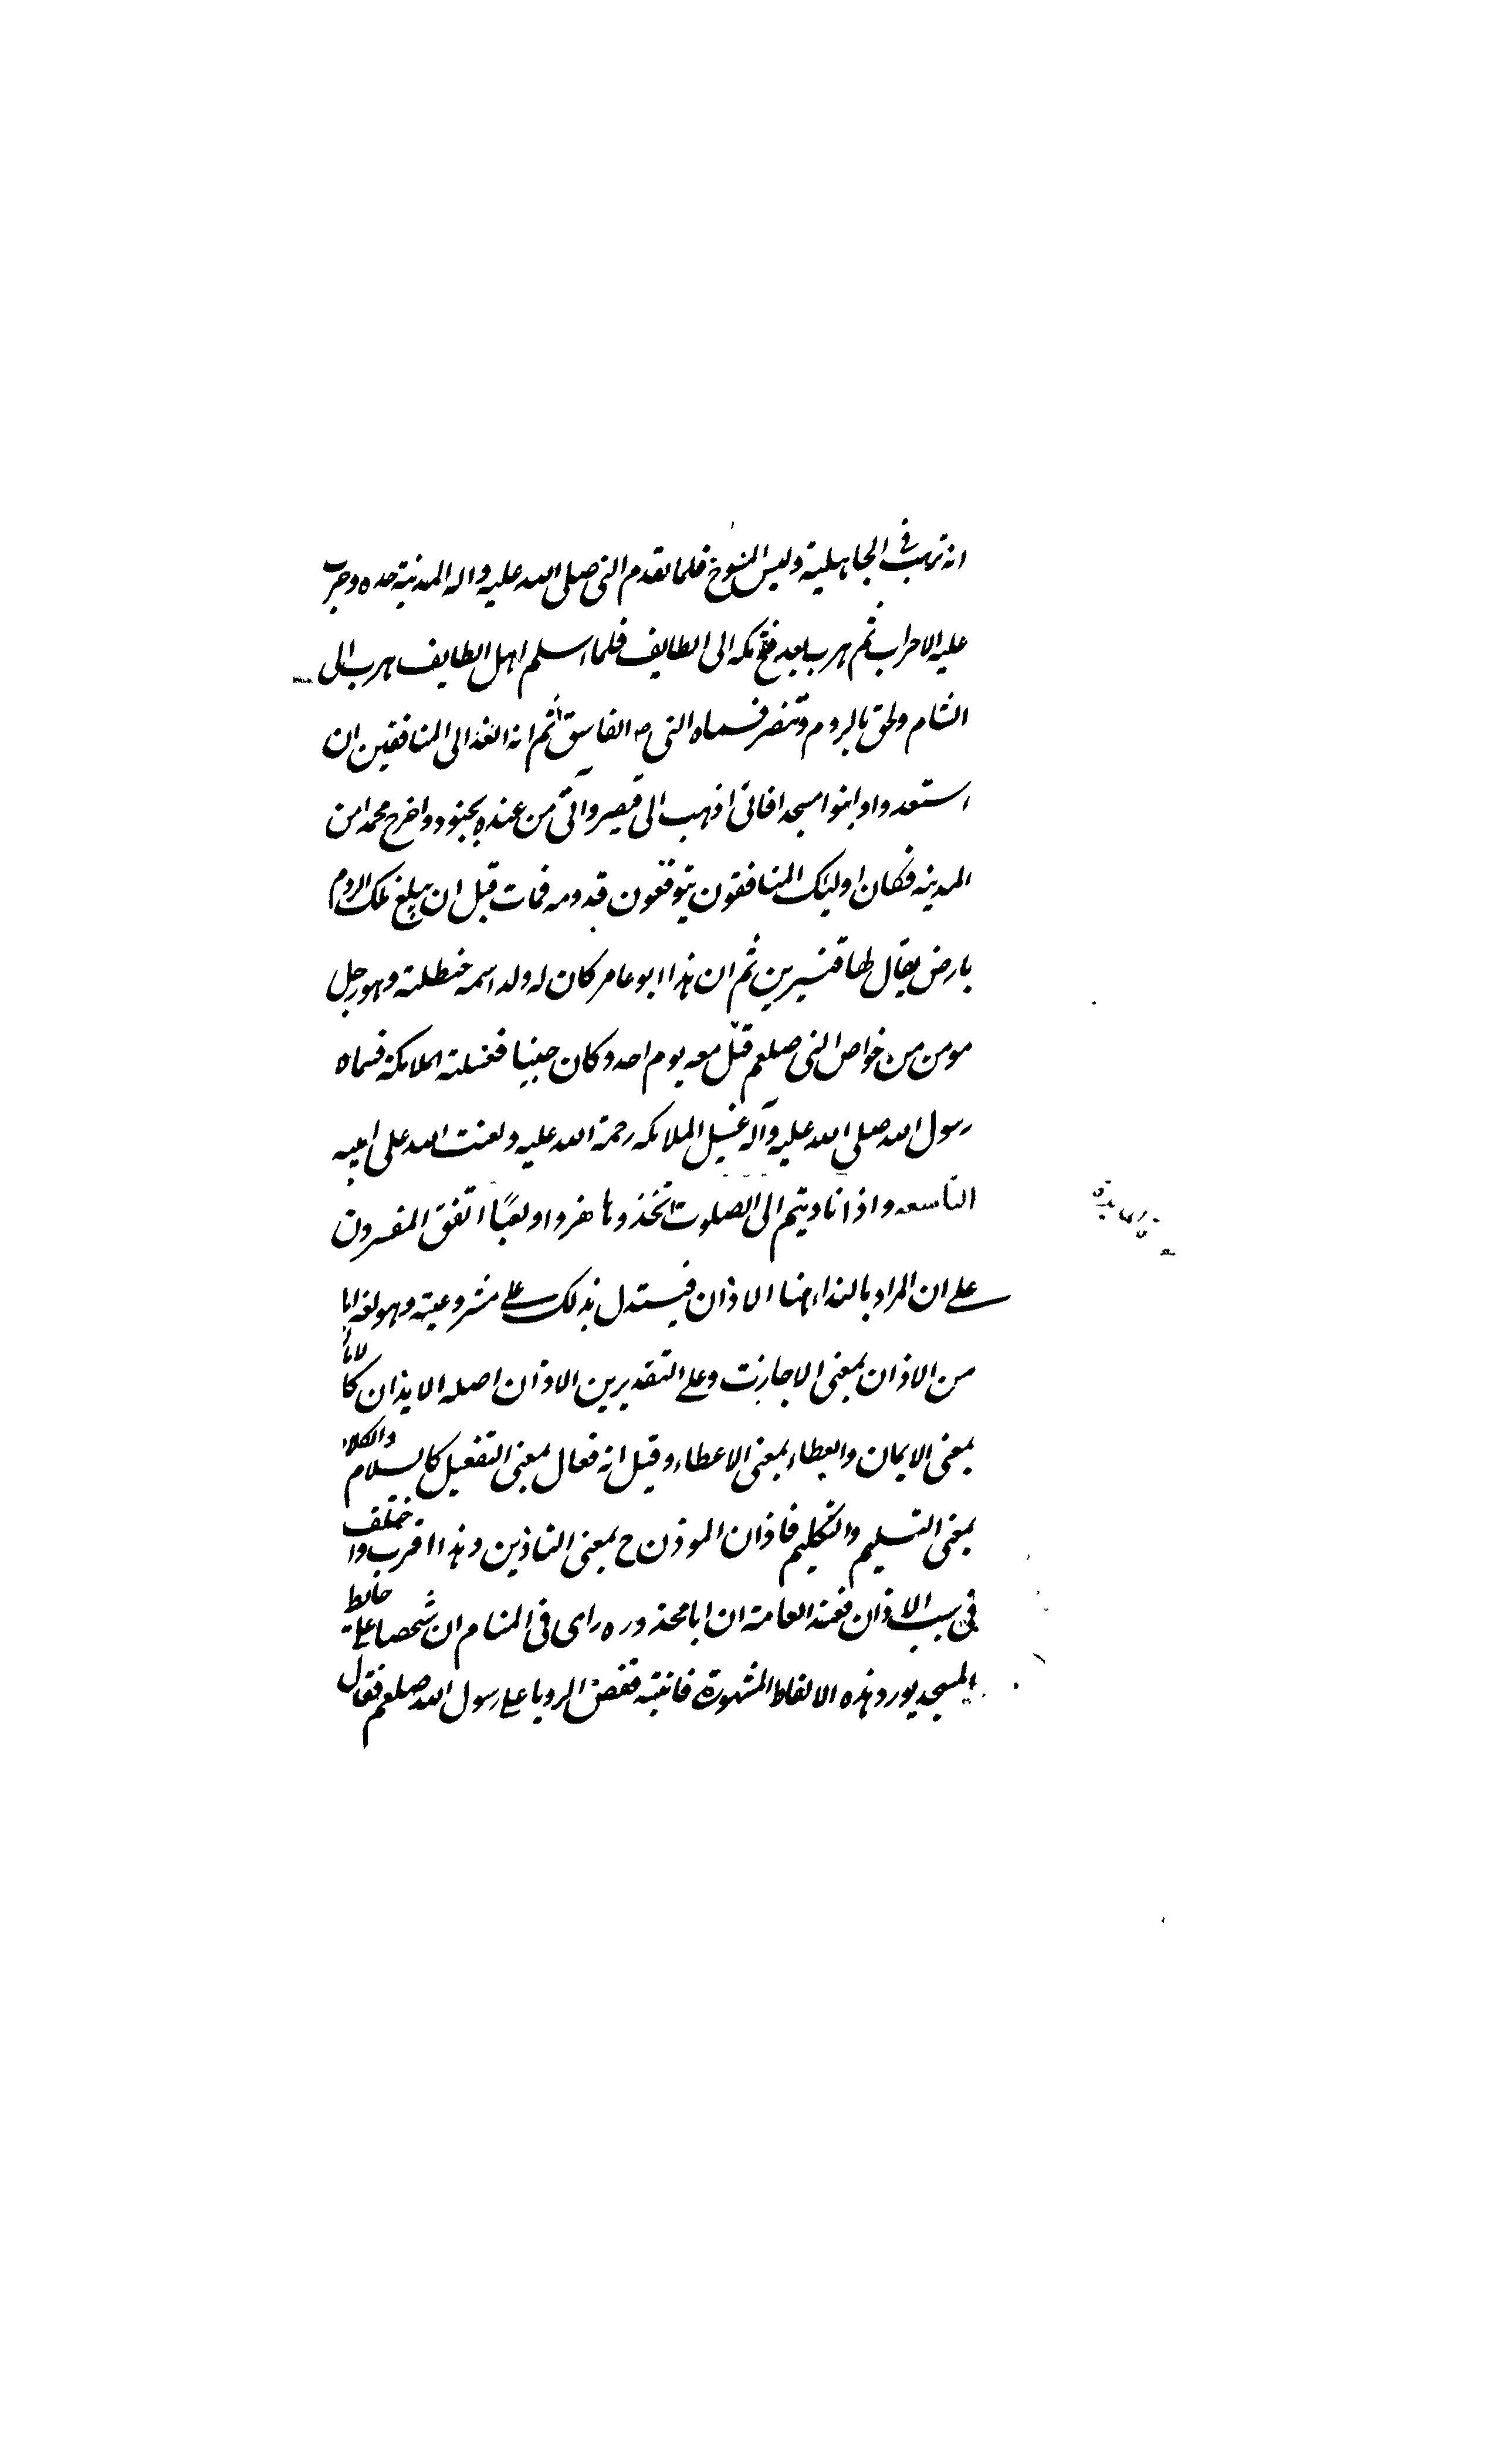 انه ترهب في الجاهلية ولبس المسوح فلما تقدم النبى صلى الله عليه واله المدينة حسده وحزب
عليه الاحزاب ثم هرب بعد فتح مكه الى الطايف فلما اسلم اهل الطايف هرب الى
الشام ولحق بالروم وتنصر فسماه النبى ص الفاسق ثم انه انفذ الى المنافقين ان
استعدوا وابنوا مسجدا فانى اذهب الى قيصر وآتى من عنده بجنود واخرج محمدا من
المدينه فكان اوليك المنافقون يتوقعون قدومه فمات قبل ان يبلغ ملك الروم
بارض يقال لها قنسرين ثم ان هذا ابو عامر كان له ولد اسمه حنظلة وهو رجل
مومن من خواص النبى صلعم قتل معه يوم احد وكان جنبا فغسلته الملائكة فسماه
رسول الله صلى الله عليه وآله غسيل الملائكه رحمة الله عليه ولعنت الله على ابيه
التاسعه واذا ناديتم الى الصلوت اتخذوها هزوا ولعبًا اتفق المفسرون
على ان المراد بالنداء هنا الاذان فيستدل بذلك على مشروعيته وهو لغة اما
من الاذان بمعنى الاجازت وعلى التقديرين الاذان اصله الايذان كالامان
بمعنى الايمان والعطاء بمعنى الاعطاء وقيل انه فعال بمعنى التفعيل كالسلام والكلام
بمعنى التسليم والتكليم فاذان الموذن ح بمعنى التاذين وهذا اقرب واختلف
في سبب الاذان فعند العامة ان ابا محذوره راى فى المنام ان شخصا على حايط
المسجد يورد هذه الالفاظ المشهورة فانتبه فقص الرويا على رسول الله صلعم فقال